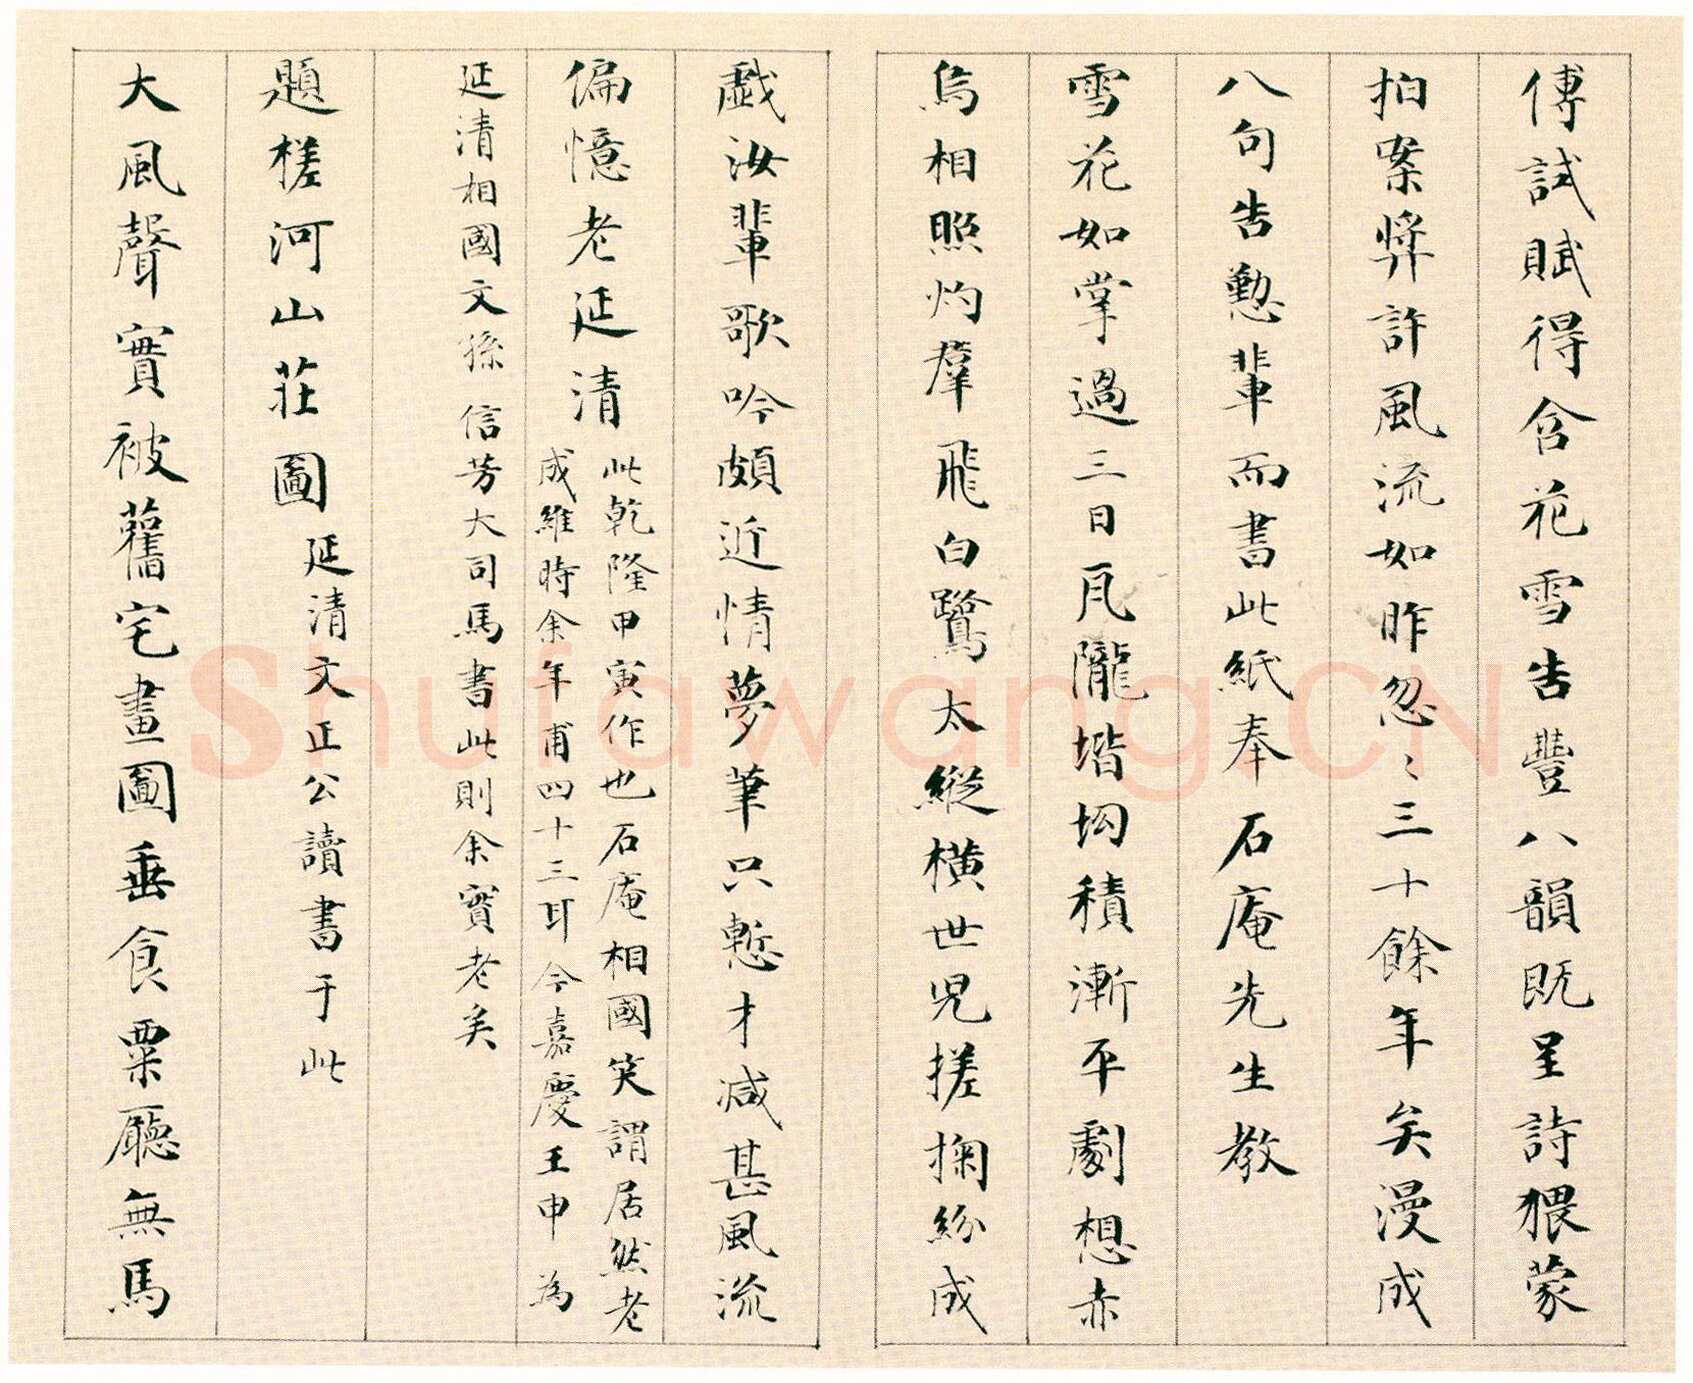 傅試賦得含花雪告豐八韻既呈詩猥蒙
拍案弊許風流如昨忽〻三十餘年矣漫成
八句告懃輩而書此紙奉石庵先生教
雪花如掌過三日瓦隴堦坳積漸平劇想赤
烏相照灼羣飛白鷺太縱橫世児搓掬紛成
戲汝輩歌吟頗近情夢筆只慙才減甚風流
偏憶老延清
此乾隆甲寅作也石庵相國笑謂居然老
成維時余年甫四十三耳今嘉慶壬申為
延清相國文孫信芳大司馬書此則余實老矣
題槎河山莊圖
延清文正公讀書于此
大風聲實被舊宅畫圖垂食粟廳無馬
Shufawang.CN